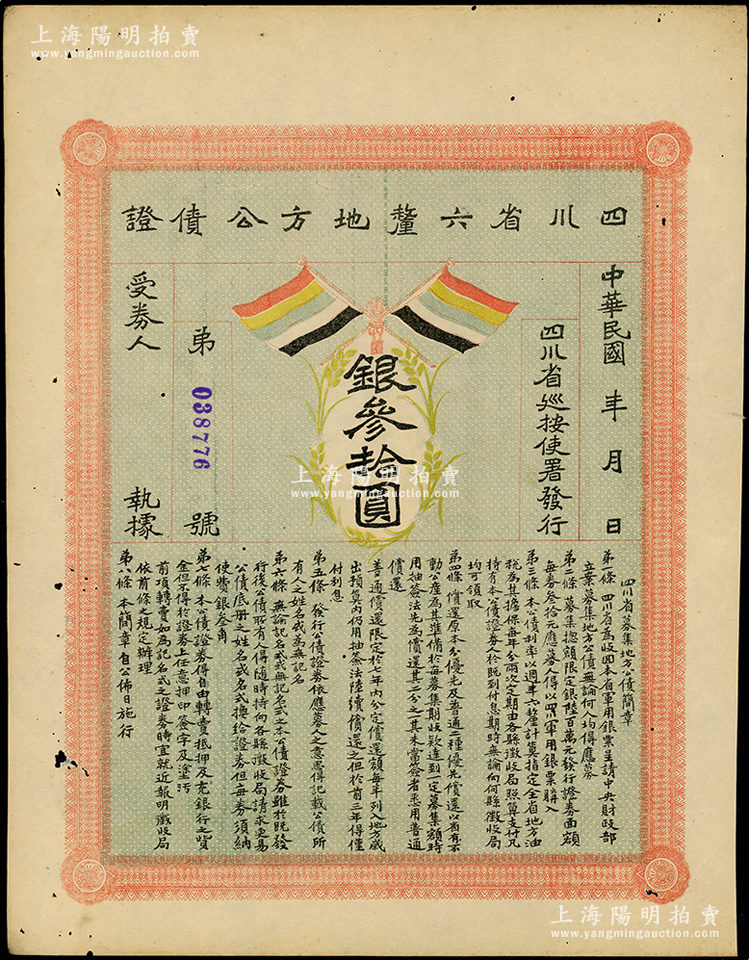 上海陽明拍賣
www.yangmingauction.com
四川省六釐地方公債證
中華民國 年 月 日
四川省巡按使署發行
銀參拾圓
弟 038776 號
受券人 執據
上海陽明拍賣
www.yangmingauction.com
四川省募集地方公債簡章
第一條 四川省為收回本省軍用銀票呈請中央財政部
立案募集地方公債無論何人均得應募
第二條 募集總額限定銀陸百萬元發行證券面額
每券叁拾元應募人得以四川軍用銀票購入
第三條 本公債利率以週年六釐計算指定全省地方油
稅為其擔保每年分兩次定期由各縣徵收局照算支付凡
持有本公債證券人於既到付息期時無論向何縣徵收局
均可領取
第四條 償還原本分優先及普通二種優先償還以省有不
動公產為其準備於每募集期收欵達到一定募集額時
用抽籤法先為償還其二分之一其未當簽者悉用普通
償還
普通償還限定於七年內分定償還額每年列入地方歲
出預算內仍用抽籤法陸續償還之但於前三年得僅
付利息
第五條 發行公債證券依應募人之意思得記載公債所
有人之姓名或為無記名
第六條 無論記名式或無記名式之本公債證券雖於既發
行後公債所有人得隨時持向各縣徵收局請求更易
公債底册之姓名或名式換給證券但每券須納
使費銀叁角
第七條 本公債證券得自由轉賣抵押及充銀行之貲
金但不得於證券上任意押印簽字及塗污
前項轉賣如為記名式之證券時宜就近報明徵收局
依前條之規定辦理
第八條 本簡章自公佈日施行
上海陽明拍賣
www.yangmingauction.com